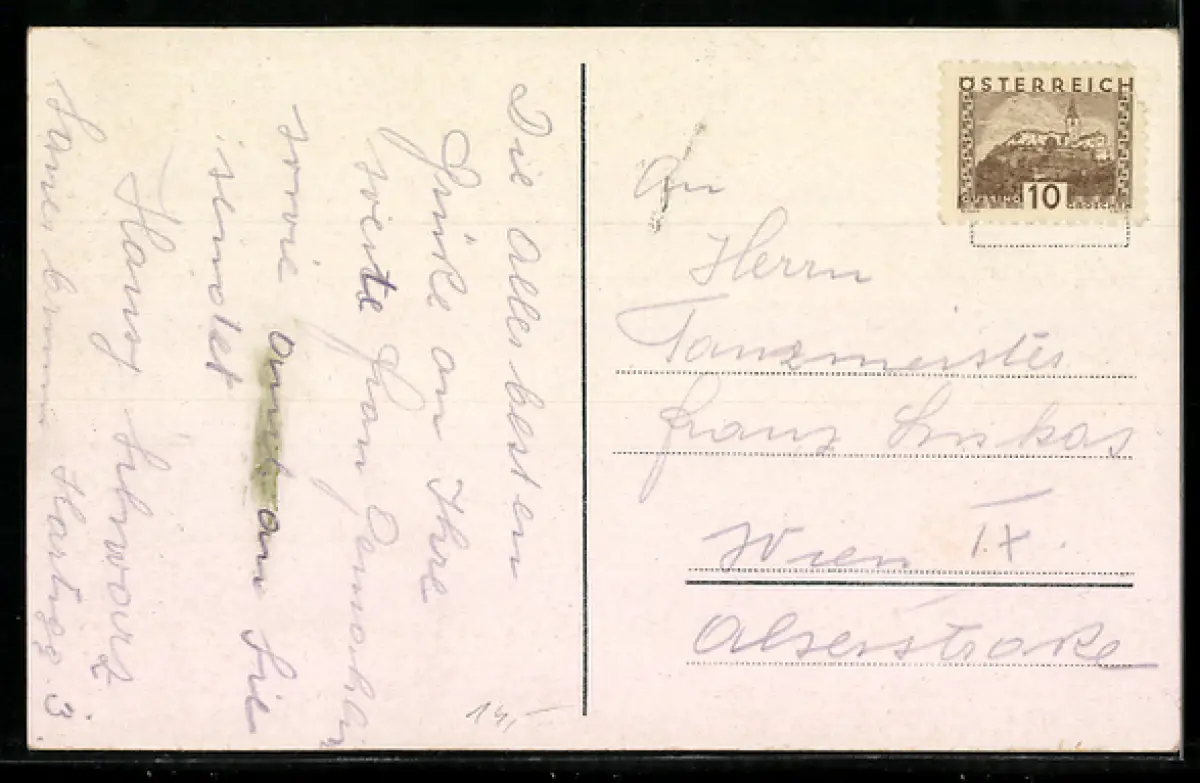 Die Allerbesten
Grüße an Ihre
werte Frau Gemahlin
sowie auch an Sie
sendet
Hansy Schwarz
Hartigg. 3.
14,-
ÖSTERREICH
10
GROSCHEN
An
Herrn
Tanzmeister
Franz
Wien IX.
Alserstraße